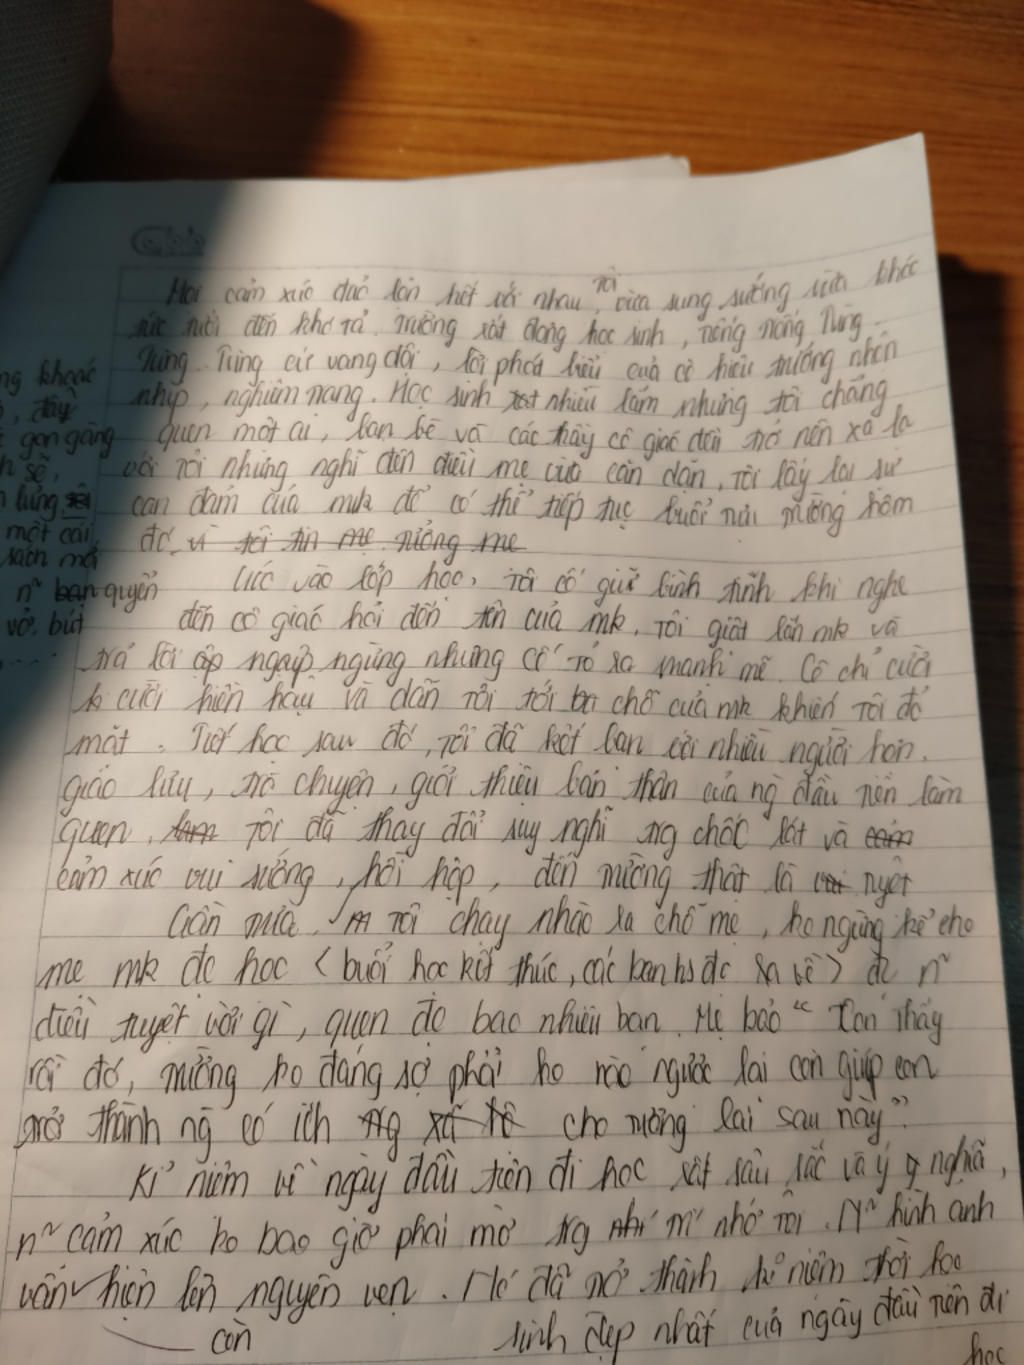 Mọi cảm xúc đảo lộn hết với nhau, Tôi vừa sung sướng vừa khóc
nức nuối đến khó tả. Trường rất đông học sinh, tiếng trống Tùng
Tùng Tùng cứ vang dội, lời phát biểu của cô hiệu trưởng nhón
nhịp, nghiêm nang. Học sinh rất nhiều lắm nhưng tôi chẳng
quen một ai, bạn bè và các thầy cô giáo đều trở nên xa lạ
với tôi nhưng nghĩ đến điều mẹ vừa căn dặn, Tôi lấy lại sự
can đảm của mk để có thể tiếp tục buổi tựu trường hôm
đó vì tôi tin mẹ
ng khoác
đầy
gọn gàng
sẽ,
lưng
một cái
sách mới
n~ ban quyển
vở, bút
Lúc vào lớp học, Tôi cố giữ bình tĩnh khi nghe
đến cô giáo hỏi đến tên của mk, Tôi giật bắn mk và
trả lời ấp ngấp ngừng nhưng cố tỏ ra mạnh mẽ. Cô chỉ cười
cười hiền hậu và dẫn tôi tới chỗ của mk khiến Tôi đỏ
mặt. Tiết học sau đó, Tôi đã kết bạn với nhiều người hơn.
giáo lưu, trò chuyện, giới thiệu bản thân của ng đầu tiên làm
quen. làm Tôi đã thay đổi suy nghĩ trg chốc lát và cảm
cảm xúc vui sướng, hồi hộp, đến trường thật là vui tuyệt
Gần trưa, Tôi chạy nhào ra chỗ mẹ, ko ngừng kể cho
mẹ mk đc học (buổi học kết thúc, các bạn hs đc ra về) đc n~
điều tuyệt vời gì, quen đc bao nhiêu bạn. Mẹ bảo “ Con thấy
rồi đó, trường ko đáng sợ phải ko nào ngược lại còn giúp con
trở thành ng có ích trg xã hộ cho tương lai sau này”.
Kỉ niệm về ngày đầu tiên đi học rất sâu sắc và ý nghĩa,
n~ cảm xúc ko bao giờ phai mờ trg trí nhớ Tôi. N~ hình ảnh
vẫn hiện lên nguyên vẹn. Nó đã trở thành kỉ niệm thời học
còn sinh đẹp nhất của ngày đầu tiên đi
học